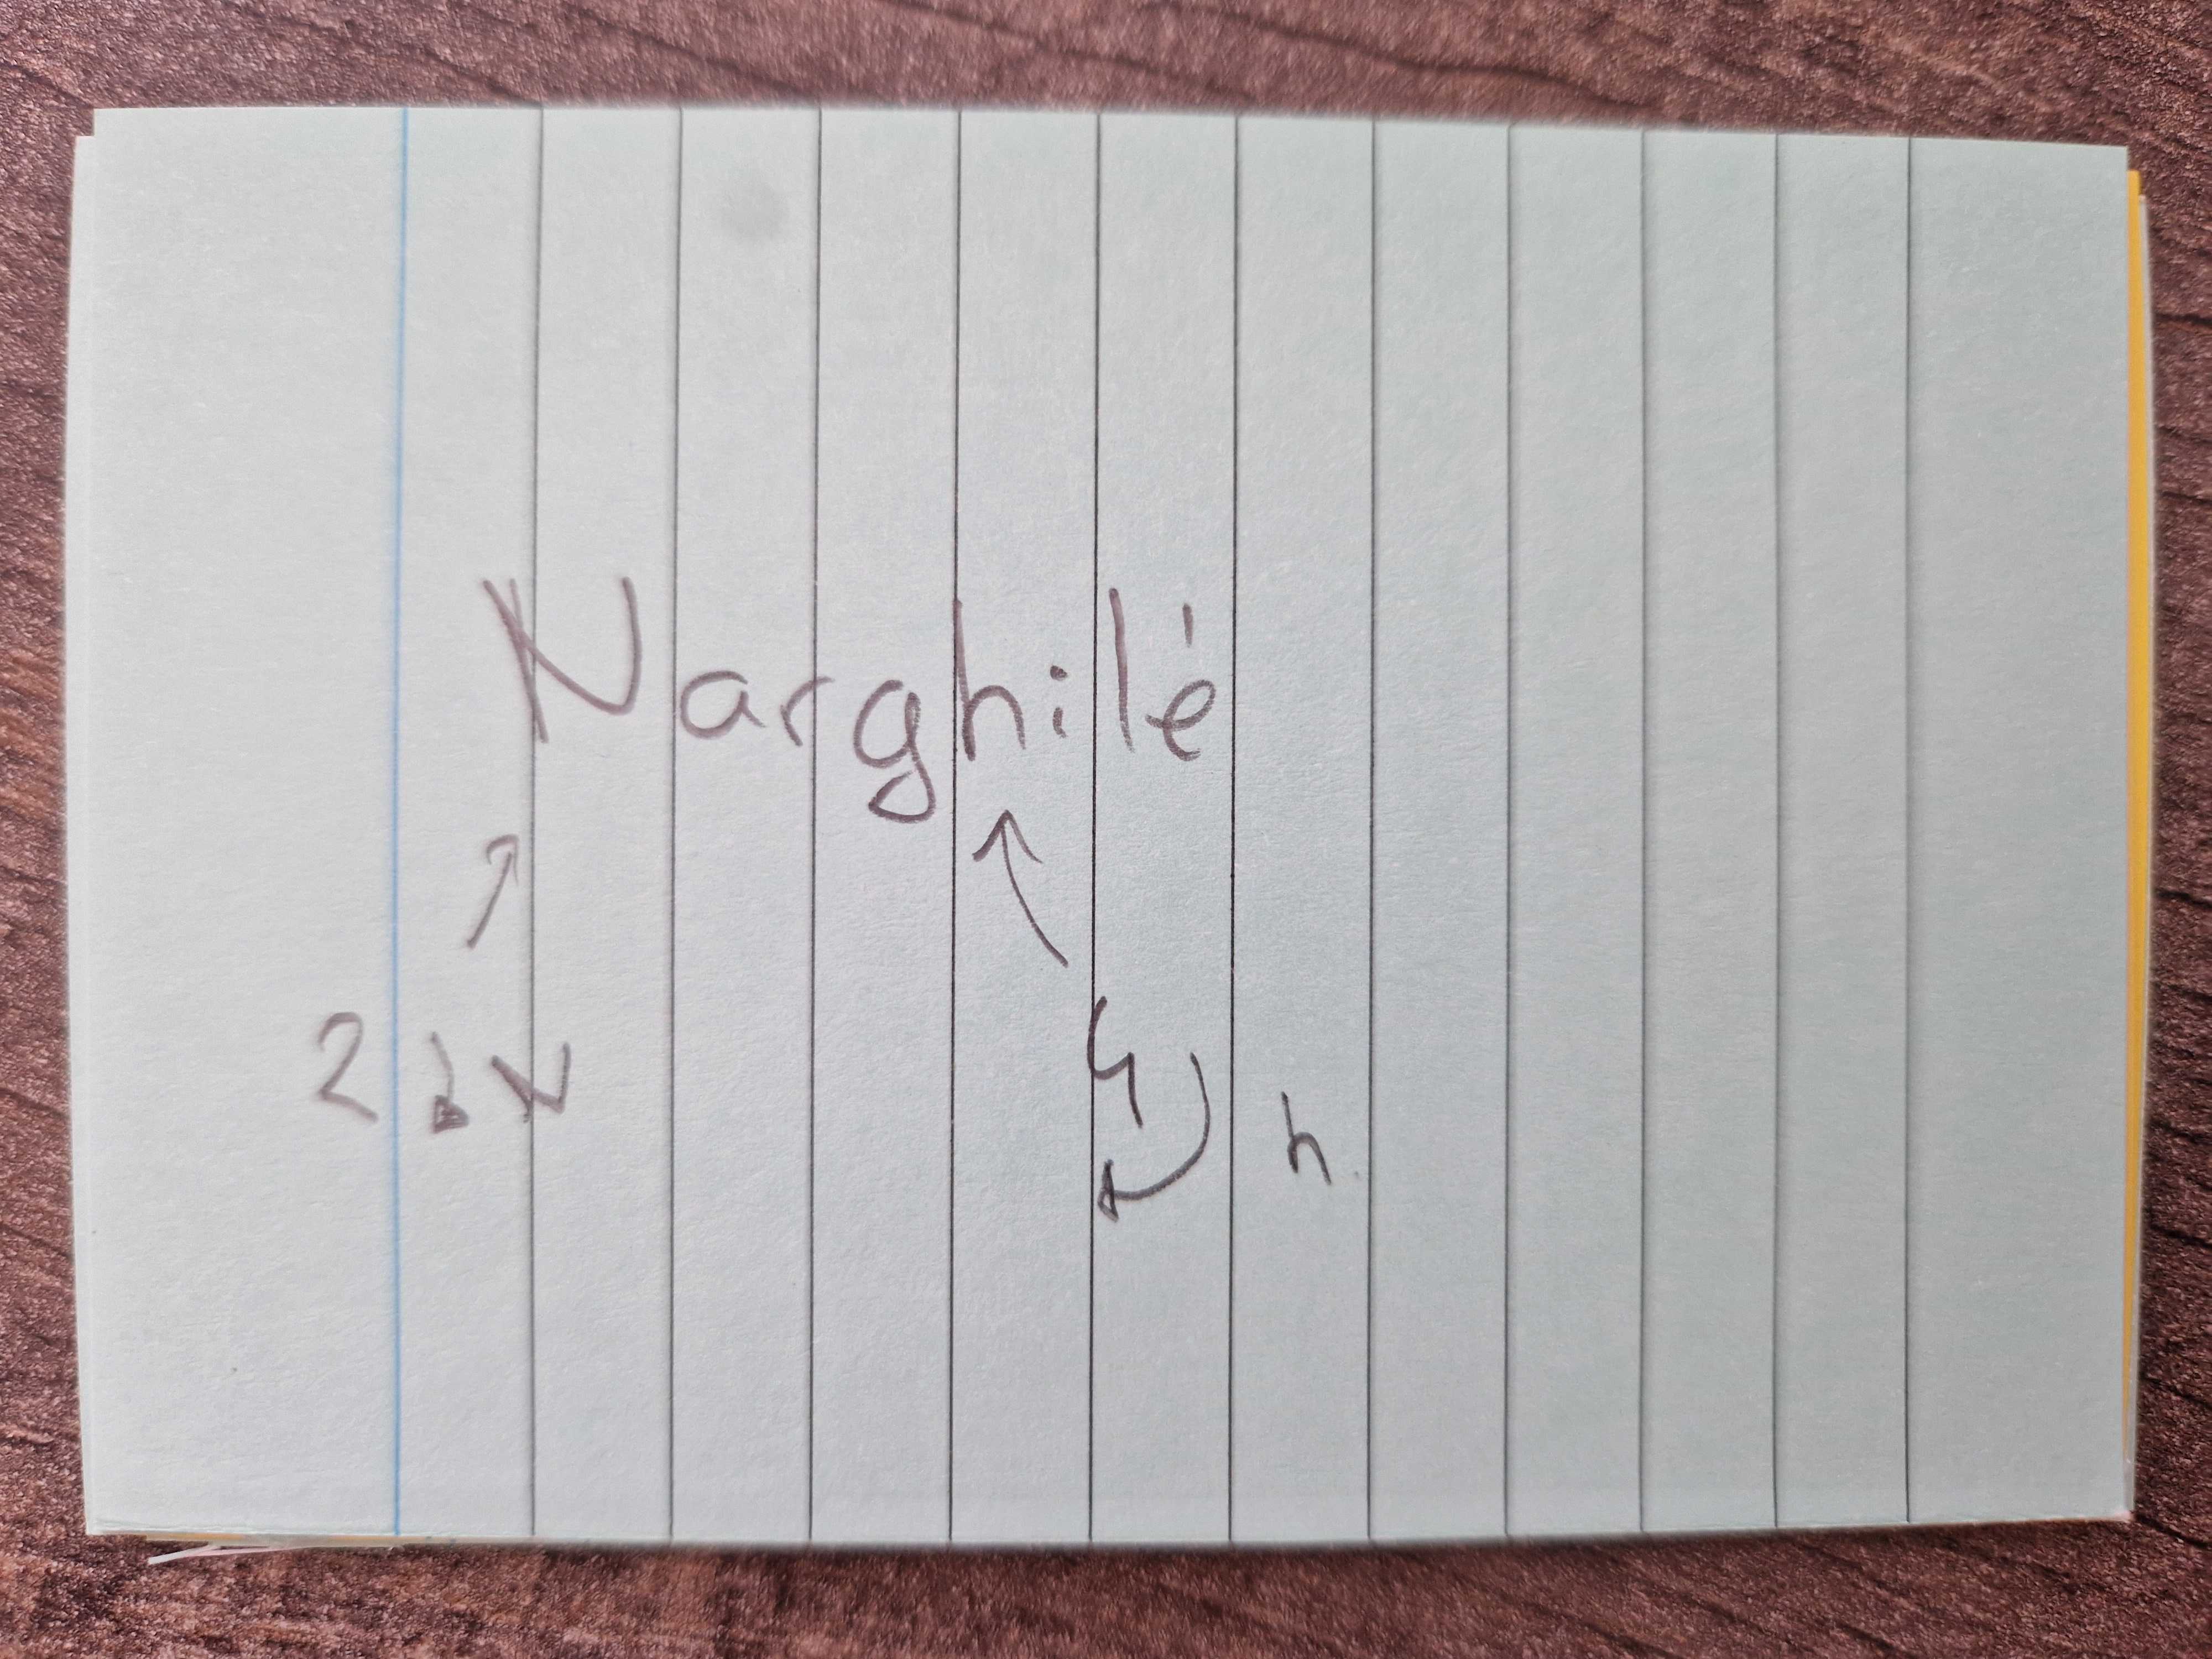 Narghilé
2 N
4 h